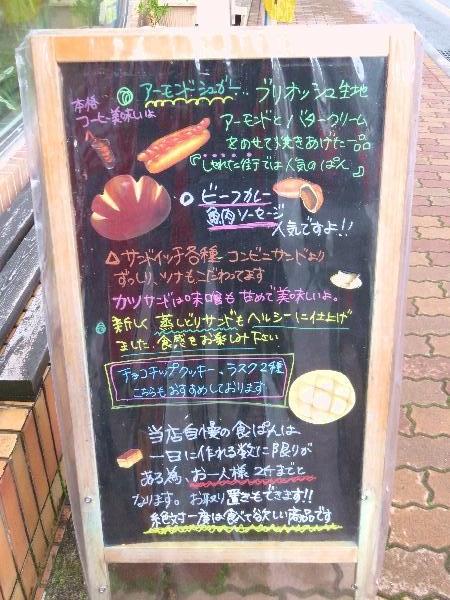 本格
コーヒー美味いよ
アーモンドシュガー‥ブリオッシュ生地
アーモンドとバタークリーム
をのせて焼きあげた一品
『しゃれた街では人気のぱん』
ビーフカレー
魚肉ソーセージ
人気ですよ!!
△サンドイッチ各種 コンビニサンドより
ずっしり、ツナもこだわってます
カツサンドは味噌も甘めで美味しいよ。
新しく蒸しどりサンドもヘルシーに仕上げ
ました。食感をお楽しみ下さい
チョコチップクッキー、ラスク2種
こちらもおすすめしております
当店自慢の食ぱんは
一日に作れる数に限りが
ある為 お一人様2ケまでと
なります。お取り置きもできます!!
絶対一度は食べて欲しい商品です